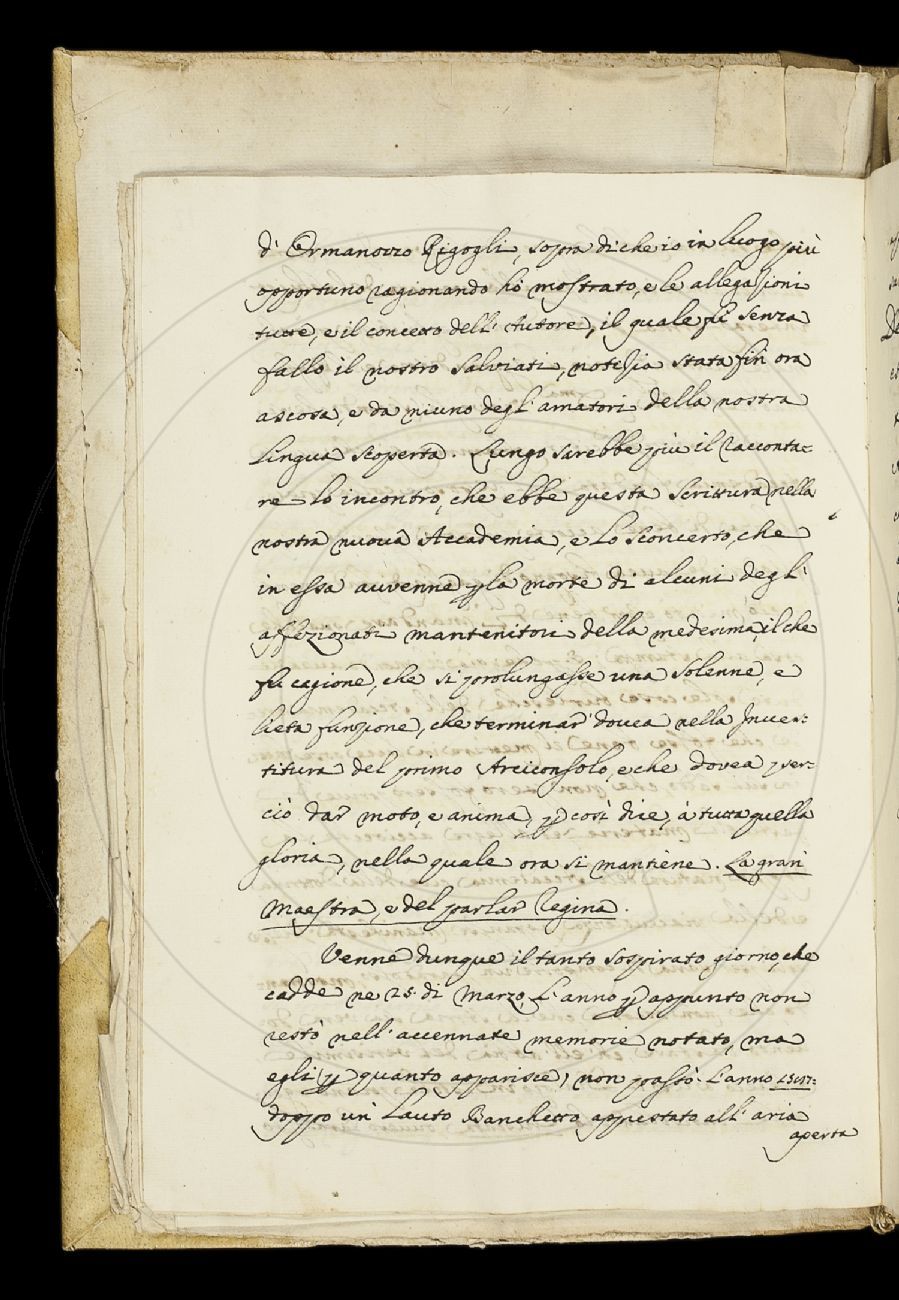 d' Ormanozzo Rigogli, sopra di che io in luogo più
opportuno ragionando hò mostrato, e le allegazioni
tutte, e il concetto dell' Autore, il quale fù senza
fallo il nostro Salviati, note sia stata fin ora
ascosa, e da niuno degl' amatori della nostra
Lingua scoperta. Lungo sarebbe più il racconta-
re lo incontro, che ebbe questa Scrittura nella
nostra nuova Accademia, e lo sconcerto, che
in essa auvenne p la morte di alcuni degl'
affezionati mantenitori della medesima, il che
fù cagione, che si prolungasse una solenne, e
lieta funzione, che terminar dovea nella Inves:
titura del primo Arciconsolo, e che dovea per:
ciò dar moto, e anima, p così dire, à tutta quella
gloria, nella quale ora si mantiene. La gran
Maestra, e del parlar Regina.
Venne dunque il tanto sospirato giorno, che
cadde ne 25. di Marzo, L' anno p appunto non
restò nell' accennate memorie notato, ma
egli (p quanto apparisce) non passò l' anno
doppo un Lauto Banchetto appustato all' aria
aperta